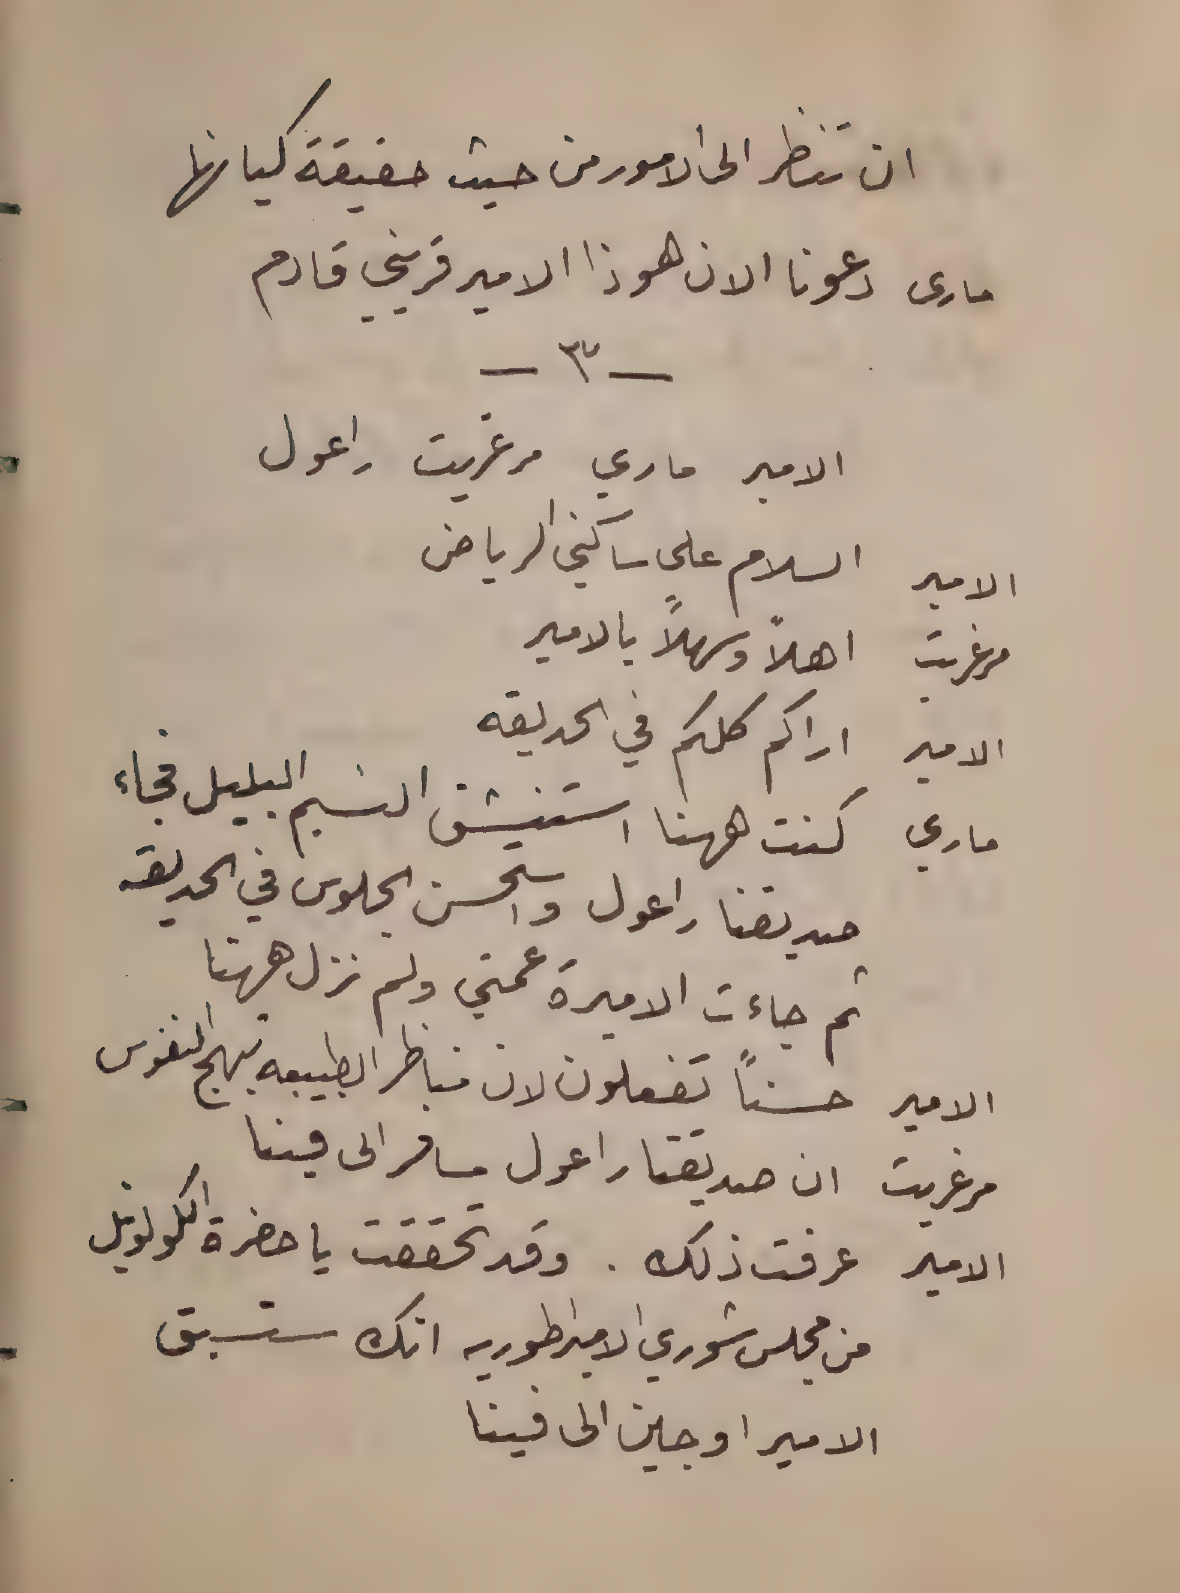 ان تنظر الى الامور من حيث حقيقة كيانها
ماري دعونا الان هوذا الامير قريني قادم
— ٣ —
الامير ماري مرغريت راعول
الامير السلام على ساكني الرياض
مرغريت اهلاً وسهلاً بالامير
الامير اراكم كلكم في الحديقه
ماري كنت ههنا استنشق النسيم البليل فجاء
صديقنا راعول واستحسن الجلوس في الحديقه
ثم جاءت الاميرة عمتي ولم نزل ههنا
الامير حسناً تفعلون لان مناظر الطبيعه تبهج النفوس
مرغريت ان صديقنا راعول مسافر الى فينا
الامير عرفت ذلك . وقد تحققت يا حضرة الكولونيل
من مجلس شوري الامبراطوريه انك ستسبق
الامير اوجين الى فينا